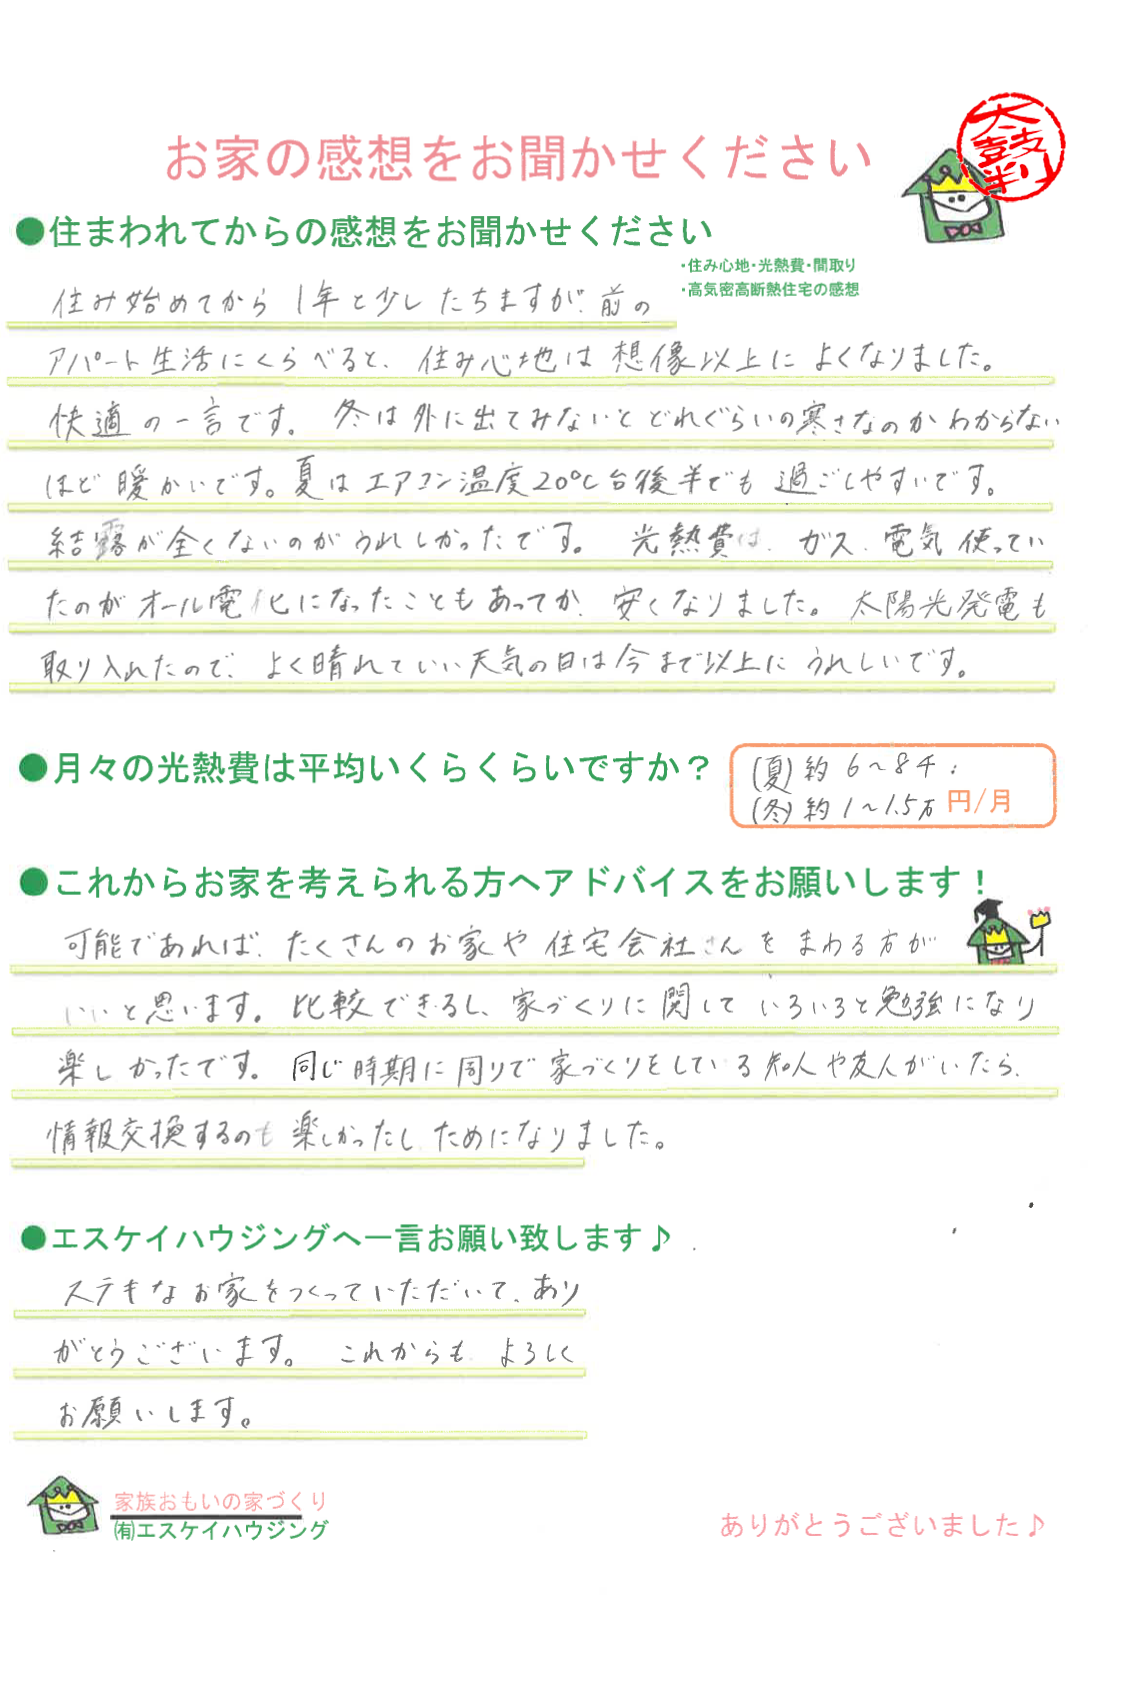 お家の感想をお聞かせください
太鼓判
●住まわれてからの感想をお聞かせください
・住み心地・光熱費・間取り
・高気密高断熱住宅の感想
住み始めてから1年と少したちますが、前の
アパート生活にくらべると、住み心地は想像以上によくなりました。
快適の一言です。冬は外に出てみないとどれぐらいの寒さなのかわからない
ほど暖かいです。夏はエアコン温度20℃台後半でも過ごしやすいです。
結露が全くないのがうれしかったです。光熱費は、ガス、電気使ってい
たのがオール電化になったこともあってか、安くなりました。太陽光発電も
取り入れたので、よく晴れていい天気の日は今まで以上にうれしいです。
●月々の光熱費は平均いくらくらいですか？
(夏)約6〜8千
(冬)約1〜1.5万 円/月
●これからお家を考えられる方へアドバイスをお願いします！
可能であれば、たくさんのお家や住宅会社さんをまわる方が
いいと思います。比較できるし、家づくりに関していろいろと勉強になり
楽しかったです。同じ時期に周りで家づくりをしている知人や友人がいたら、
情報交換するのも楽しかったし、ためになりました。
●エスケイハウジングへ一言お願い致します♪
ステキなお家をつくっていただいて、あり
がとうございます。これからも、よろしく
お願いします。
家族おもいの家づくり
㈲エスケイハウジング
ありがとうございました♪